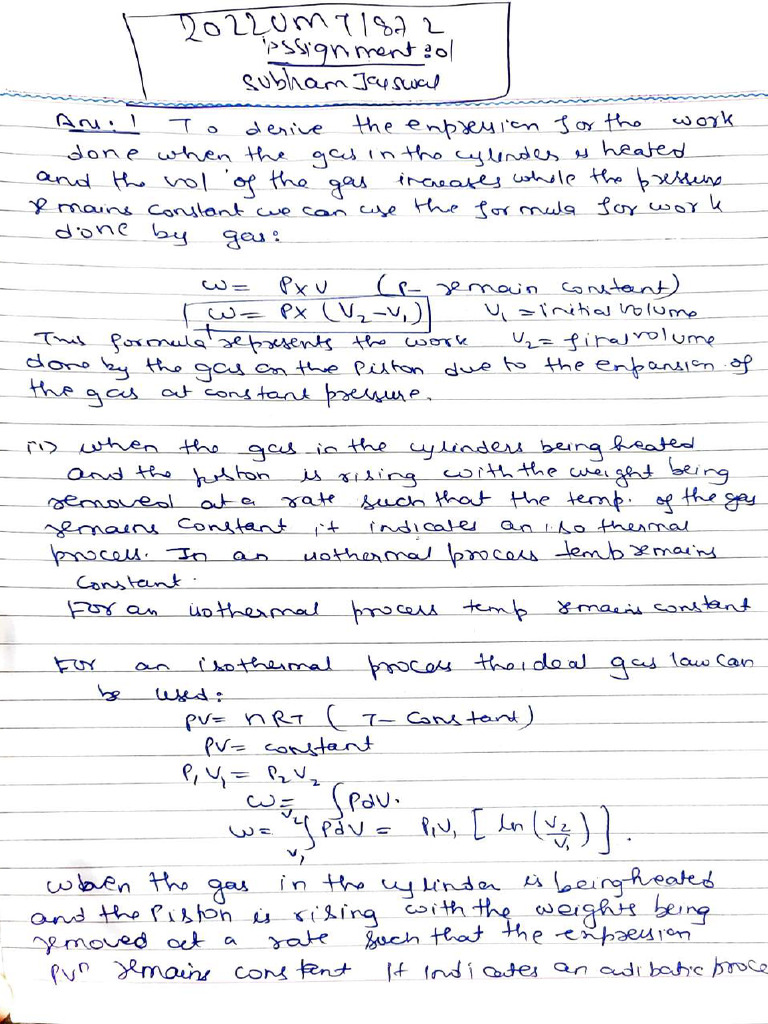 2022UM71872
Assignment :01
Subham Jaiswal
Ans. 1 To derive the expression for the work
done when the gas in the cylinder is heated
and the vol of the gas increases while the pressure
remains constant we can use the formula for work
done by gas:
w = P x V (P- remain constant)
w = P x (V2-V1) V1 = initial volume
This formula represents the work V2 = final volume
done by the gas on the Piston due to the expansion of
the gas at constant pressure.
(i) when the gas in the cylinders being heated
and the piston is rising with the weight being
removed at a rate such that the temp. of the gas
remains constant, it indicates an iso thermal
process. In an isothermal process temb remains
constant.
For an isothermal process temp remains constant
For an isothermal process the ideal gas law can
be used:
PV = nRT (T- Constant)
PV = constant
P1 V1 = P2 V2
w = ∫PdV.
w = V1∫V2 PdV = P1V1 [ ln (V2/V1) ].
when the gas in the cylinder is being heated
and the Piston is rising with the weights being
removed at a rate such that the expression
PVn remains constant It indicates an adibatic proce